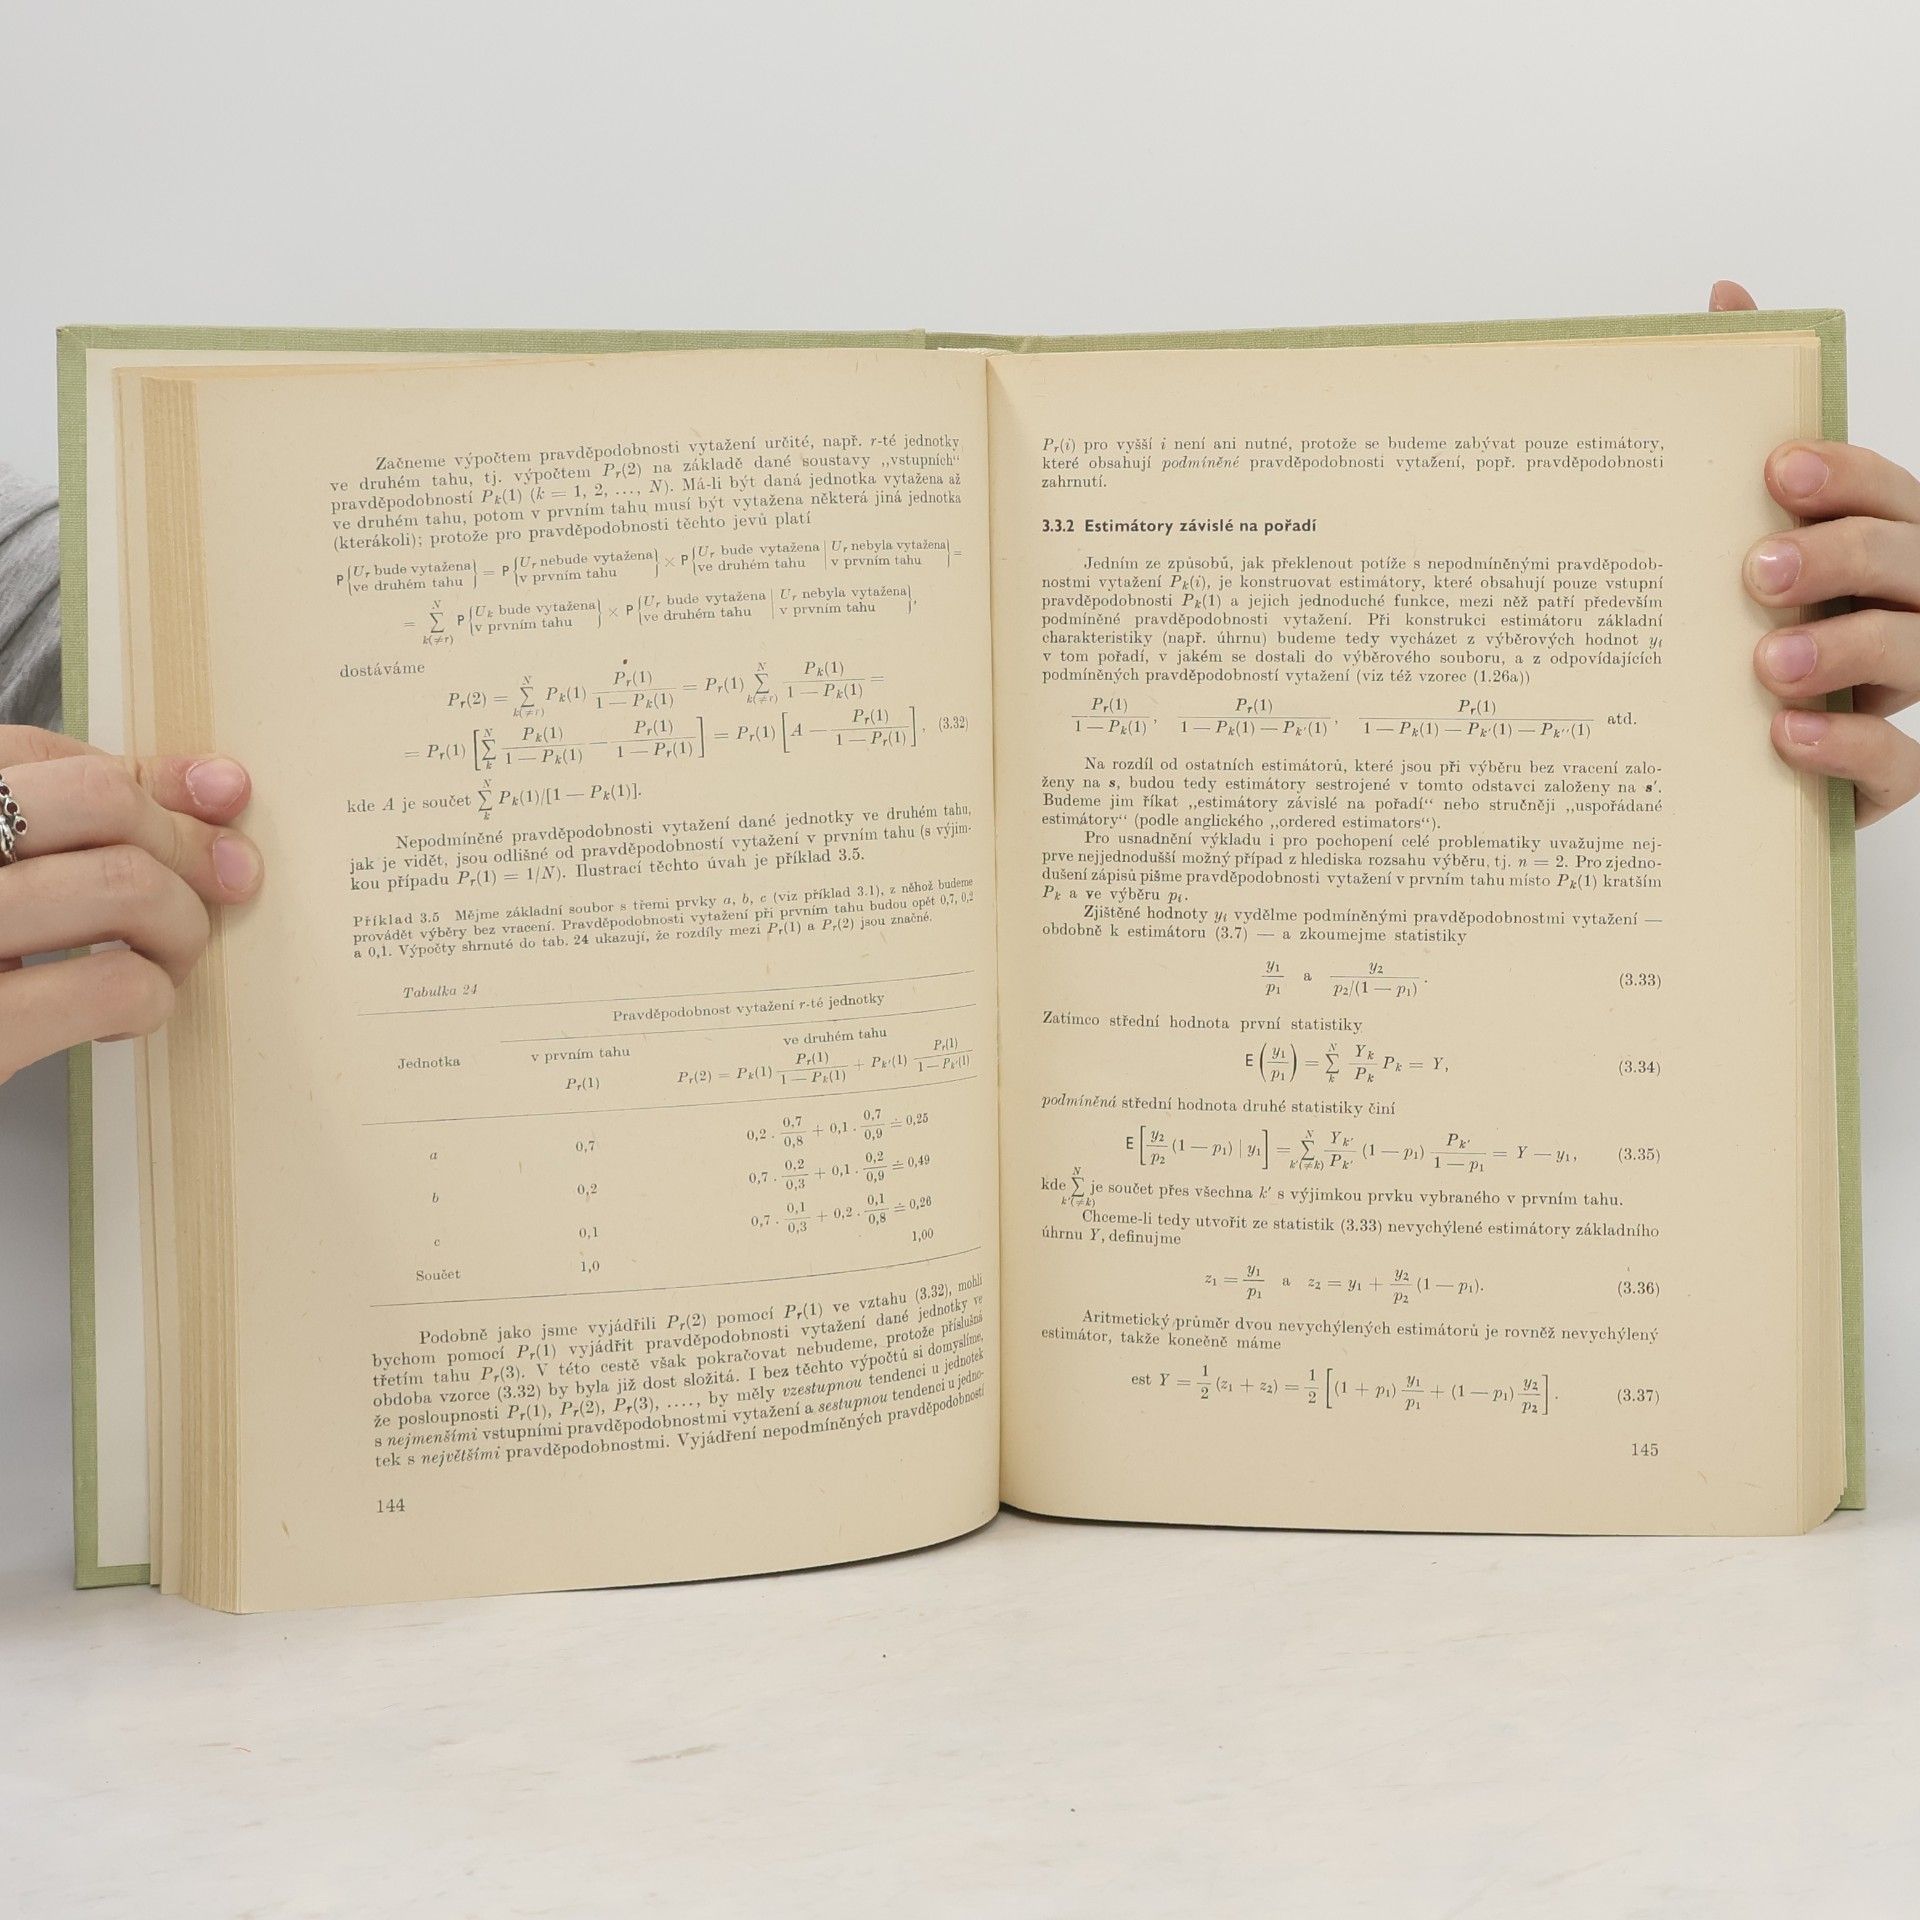 Začneme výpočtem pravděpodobnosti vytažení určité, např. r-té jednotky
ve druhém tahu, tj. výpočtem P_r(2) na základě dané soustavy „vstupních“
pravděpodobností P_k(1) (k = 1, 2, ..., N). Má-li být daná jednotka vytažena až
ve druhém tahu, potom v prvním tahu musí být vytažena některá jiná jednotka
(kterákoli); protože pro pravděpodobnosti těchto jevů platí
P{U_r bude vytažena ve druhém tahu} = P{U_r nebude vytažena v prvním tahu} × P{U_r bude vytažena ve druhém tahu | U_r nebyla vytažena v prvním tahu} =
= ∑_{k(≠r)}^N P{U_k bude vytažena v prvním tahu} × P{U_r bude vytažena ve druhém tahu | U_r nebyla vytažena v prvním tahu},
dostáváme
P_r(2) = ∑_{k(≠r)}^N P_k(1) P_r(1)/(1 — P_k(1)) = P_r(1) ∑_{k(≠r)}^N P_k(1)/(1 — P_k(1)) =
= P_r(1) [∑_k^N P_k(1)/(1 — P_k(1)) — P_r(1)/(1 — P_r(1))] = P_r(1) [A — P_r(1)/(1 — P_r(1))], (3.32)
kde A je součet ∑_k^N P_k(1)/[1 — P_k(1)].
Nepodmíněné pravděpodobnosti vytažení dané jednotky ve druhém tahu,
jak je vidět, jsou odlišné od pravděpodobností vytažení v prvním tahu (s výjim-
kou případu P_r(1) = 1/N). Ilustrací těchto úvah je příklad 3.5.
Příklad 3.5 Mějme základní soubor s třemi prvky a, b, c (viz příklad 3.1), z něhož budeme
provádět výběry bez vracení. Pravděpodobnosti vytažení při prvním tahu budou opět 0,7, 0,2
a 0,1. Výpočty shrnuté do tab. 24 ukazují, že rozdíly mezi P_r(1) a P_r(2) jsou značné.
Tabulka 24
Pravděpodobnost vytažení r-té jednotky
Jednotka
v prvním tahu
P_r(1)
ve druhém tahu
P_r(2) = P_k(1) P_r(1)/(1 — P_k(1)) + P_k'(1) P_r(1)/(1 — P_k'(1))
a 0,7 0,2 . 0,7/0,8 + 0,1 . 0,7/0,9 ≐ 0,25
b 0,2 0,7 . 0,2/0,3 + 0,1 . 0,2/0,9 ≐ 0,49
c 0,1 0,7 . 0,1/0,3 + 0,2 . 0,1/0,8 ≐ 0,26
Součet 1,0 1,00
Podobně jako jsme vyjádřili P_r(2) pomocí P_r(1) ve vztahu (3.32), mohli
bychom pomocí P_r(1) vyjádřit pravděpodobnosti vytažení dané jednotky ve
třetím tahu P_r(3). V této cestě však pokračovat nebudeme, protože příslušná
obdoba vzorce (3.32) by byla již dost složitá. I bez těchto výpočtů si domyslíme,
že posloupnosti P_r(1), P_r(2), P_r(3), ...., by měly vzestupnou tendenci u jednotek
s nejmenšími vstupními pravděpodobnostmi vytažení a sestupnou tendenci u jedno-
tek s největšími pravděpodobnostmi. Vyjádření nepodmíněných pravděpodobností
144
P_r(i) pro vyšší i není ani nutné, protože se budeme zabývat pouze estimátory,
které obsahují podmíněné pravděpodobnosti vytažení, popř. pravděpodobnosti
zahrnutí.
3.3.2 Estimátory závislé na pořadí
Jedním ze způsobů, jak překlenout potíže s nepodmíněnými pravděpodob-
nostmi vytažení P_k(i), je konstruovat estimátory, které obsahují pouze vstupní
pravděpodobnosti P_k(1) a jejich jednoduché funkce, mezi něž patří především
podmíněné pravděpodobnosti vytažení. Při konstrukci estimátoru základní
charakteristiky (např. úhrnu) budeme tedy vycházet z výběrových hodnot y_i
v tom pořadí, v jakém se dostali do výběrového souboru, a z odpovídajících
podmíněných pravděpodobností vytažení (viz též vzorec (1.26a))
P_r(1)/(1 — P_k(1)), P_r(1)/(1 — P_k(1) — P_k'(1)), P_r(1)/(1 — P_k(1) — P_k'(1) — P_k''(1)) atd.
Na rozdíl od ostatních estimátorů, které jsou při výběru bez vracení zalo-
ženy na s, budou tedy estimátory sestrojené v tomto odstavci založeny na s'.
Budeme jim říkat „estimátory závislé na pořadí“ nebo stručněji „uspořádané
estimátory“ (podle anglického „ordered estimators“).
Pro usnadnění výkladu i pro pochopení celé problematiky uvažujme nej-
prve nejjednodušší možný případ z hlediska rozsahu výběru, tj. n = 2. Pro zjedno-
dušení zápisů pišme pravděpodobnosti vytažení v prvním tahu místo P_k(1) kratším
P_k a ve výběru p_i.
Zjištěné hodnoty y_i vydělme podmíněnými pravděpodobnostmi vytažení —
obdobně k estimátoru (3.7) — a zkoumejme statistiky
y_1/p_1 a y_2/(p_2/(1 — p_1)). (3.33)
Zatímco střední hodnota první statistiky
E(y_1/p_1) = ∑_k^N Y_k/P_k P_k = Y, (3.34)
podmíněná střední hodnota druhé statistiky činí
E[y_2/p_2 (1 — p_1) | y_1] = ∑_{k'(≠k)}^N Y_k'/P_k' (1 — p_1) P_k'/(1 — p_1) = Y — y_1, (3.35)
kde ∑_{k'(≠k)}^N je součet přes všechna k' s výjimkou prvku vybraného v prvním tahu.
Chceme-li tedy utvořit ze statistik (3.33) nevychýlené estimátory základního
úhrnu Y, definujme
z_1 = y_1/p_1 a z_2 = y_1 + y_2/p_2 (1 — p_1). (3.36)
Aritmetický průměr dvou nevychýlených estimátorů je rovněž nevychýlený
estimátor, takže konečně máme
est Y = 1/2 (z_1 + z_2) = 1/2 [(1 + p_1) y_1/p_1 + (1 — p_1) y_2/p_2]. (3.37)
145